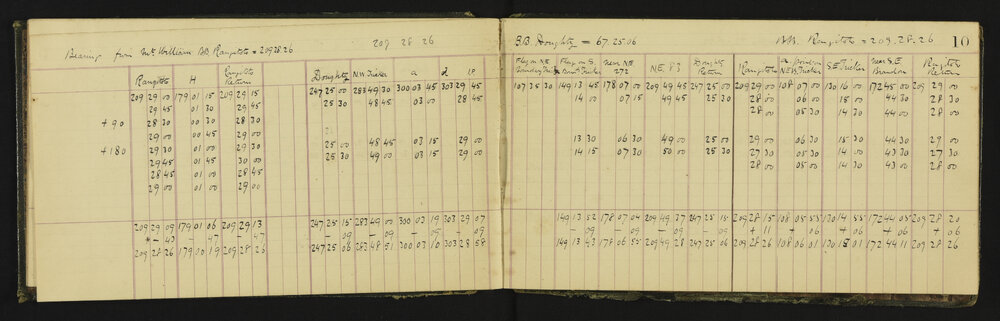 Bearing from Mt William BB Rangitoto = 209.28.26 209 28 26
Rangitoto H Rangitoto Return Doughty N.W. Tucker a d 1P
209 29 00 179 01 15 209 29 15 247 25 00 283 49 30 300 03 45 303 29 45
29 45 01 30 29 45 25 30 48 45 03 00 28 45
+90 28 30 00 30 28 30
29 00 00 45 29 00 25 00 48 45 03 15 29 00
+180 29 30 01 00 29 30 25 30 49 00 03 15 29 00
29 45 01 45 30 00
28 45 01 00 28 45
29 00 01 00 29 00
209 29 09 179 01 06 209 29 13 247 25 15 283 49 00 300 03 19 303 29 07
- 43 - 47 - 47 - 09 - 09 - 09 - 09
209 28 26 179 00 19 209 28 26 247 25 06 283 48 51 300 03 10 303 28 58
BB. Doughty = 67.25.06 BB. Rangitoto = 209.28.26 10
Flag on S. Near N.E. 272 N.E. 83 Doughty Return Rangitoto S.E Tucker Near S.E Rangitoto Return
107 35 30 149 13 45 178 07 00 209 49 45 247 25 00 209 29 00 108 07 00 130 16 00 172 45 00 209 29 00
14 00 07 15 49 45 25 30 28 00 06 00 15 00 44 30 28 30
28 00 05 30 14 30 44 00 28 00
13 30 06 30 49 00 25 00 29 00 06 00 15 30 44 30 29 00
14 15 07 30 50 00 25 30 27 30 05 30 14 30 43 30 27 30
28 00 05 30 14 30 43 30 28 00
149 13 52 178 07 04 209 49 37 247 25 15 209 28 15 108 05 55 130 14 55 172 44 05 209 28 20
- 09 - 09 - 09 - 09 + 11 + 06 + 06 + 06 + 06
149 13 43 178 06 55 209 49 28 247 25 06 209 28 26 108 06 01 130 15 01 172 44 11 209 28 26